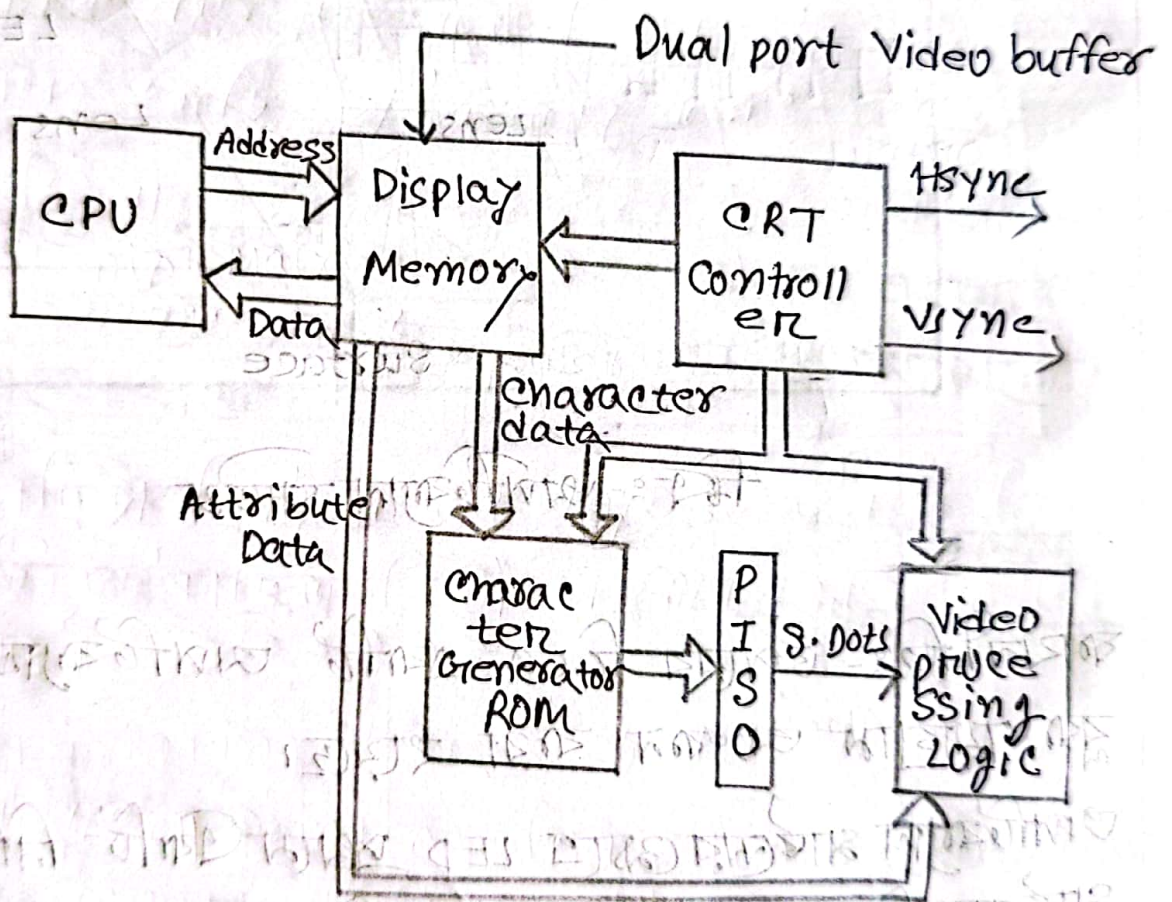 Dual port Video buffer
Address
CPU
Display
Memory
Data
CRT
Controll
er
Hsync
Vsync
Character
data
Attribute
Data
Charac
ter
Generator
ROM
P
I
S
O
S. Dots
Video
proce
ssing
Logic